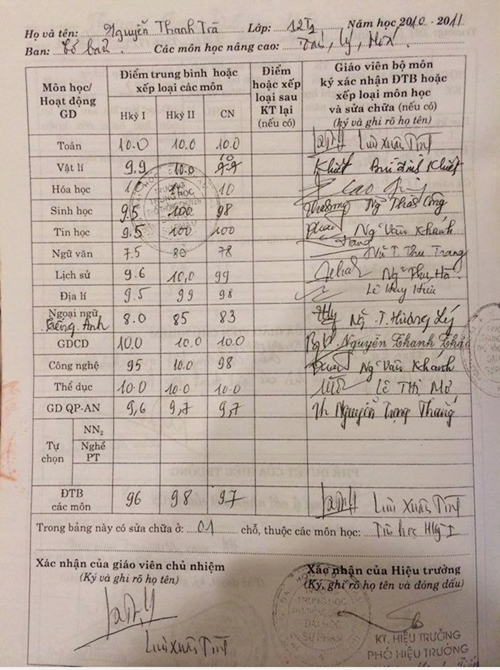 Họ và tên: Nguyễn Thanh Trà Lớp: 12T2 Năm học 2010 - 2011
Ban: Cơ bản Các môn học nâng cao: Toán, Lý, Hoá
Môn học/ Hoạt động GD | Điểm trung bình hoặc xếp loại các môn | Điểm hoặc xếp loại sau KT lại (nếu có) | Giáo viên bộ môn ký xác nhận ĐTB hoặc xếp loại môn học và sửa chữa (nếu có) (ký và ghi rõ họ tên)
Hkỳ I | Hkỳ II | CN
Toán 10.0 10.0 10.0 Lưu Xuân Tình
Vật lí 9.9 10.0 9.9 10 Khiết Bùi Đình Khiết
Hóa học 10 10 Cao
Sinh học 9.5 100 98 Ng Thái Công
Tin học 9.5 100 100 Ng Văn Khanh
Ngữ văn 7.5 80 78 Ng T. Thu Trang
Lịch sử 9.6 10,0 99 Ng Thu Hà
Địa lí 9.5 99 98 Lê Huy
Ngoại ngữ Tiếng Anh 8.0 85 83 Ng. T. Hương Lý
GDCD 10.0 10.0 10.0 Nguyễn Thanh Thảo
Công nghệ 95 10.0 98 Ng Văn Khánh
Thể dục 10.0 10.0 10.0 Lê Thị Mơ
GD QP-AN 9,6 9,7 9,7 Nguyễn Trung Thắng
Tự chọn
NN2
Nghề PT
ĐTB các môn 96 98 9.7 Lưu Xuân Tình
Trong bảng này có sửa chữa ở: 01 chỗ, thuộc các môn học: Tin học HKỳ I
Xác nhận của giáo viên chủ nhiệm
(Ký và ghi rõ họ tên)
Lưu Xuân Tình
Xác nhận của Hiệu trưởng
(Ký, ghi rõ họ tên và đóng dấu)
KT. HIỆU TRƯỞNG
PHÓ HIỆU TRƯỞNG